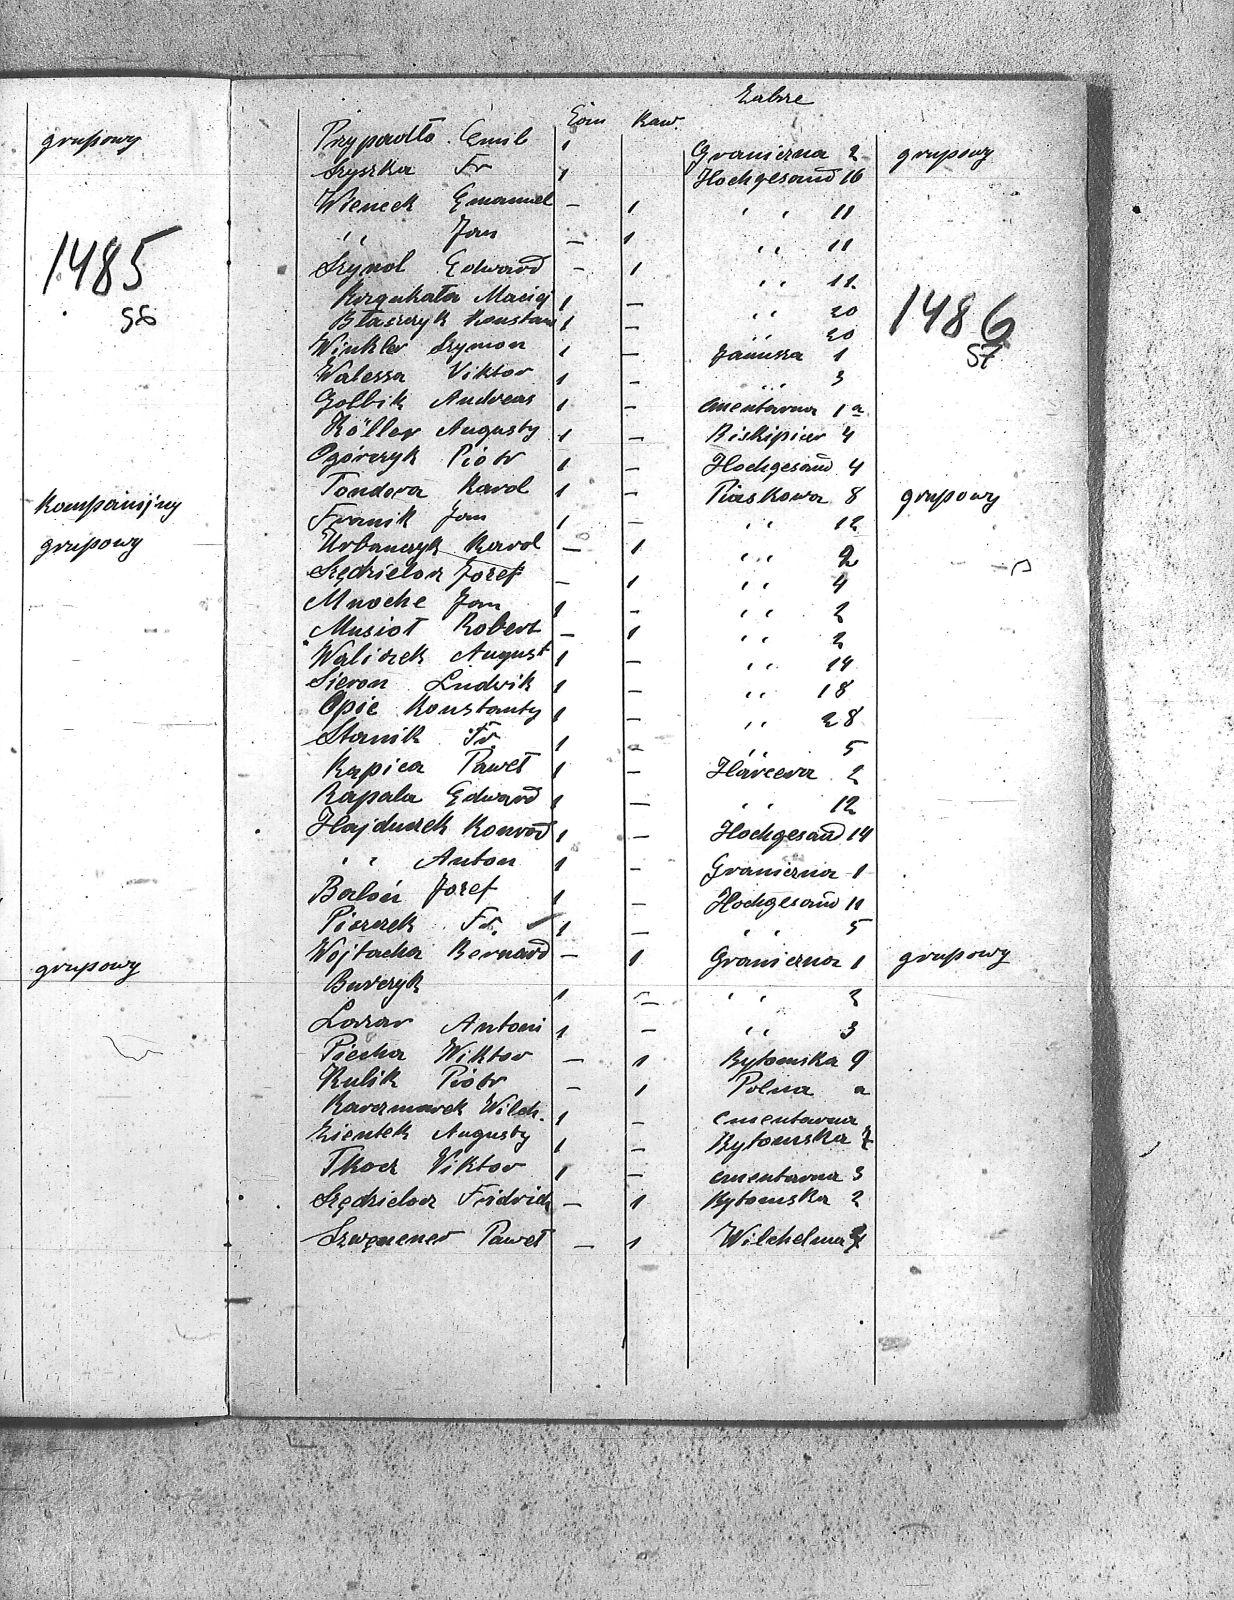 grupowy
1485
56
kompanijny
grupowy
grupowy
Zabrze
Przypadło Emil 1 Graniczna 2 grupowy
Szyszka Fr 1 Hochgesand 16
Wieneck Emanuel – 1 " 11
" Jan – 1 " 11
Szynol Edward – 1 " 12
Maciej 1 – " 20
Błaszczyk Konstan 1 – " 20
1486
57
Winkler Szymon 1 – Janusza 1
Walessa Viktor 1 – " 3
Golbik Andreas 1 – cmentarna 1a
Köller Augusty 1 – Biskipier 4
Ogórczyk Piotr 1 – Hochgesand 4
Tondera Karol 1 – Piaskowa 8 grupowy
Franik Jan 1 – " 12
Urbanczyk Karol – 1 " 2
Szędzielorz Jozef – 1 " 4
Mnoche Jan 1 – " 2
Musioł Robert – 1 " 2
Waliczek August 1 – " 14
Sieron Ludwik 1 – " 18
Opic Konstanty 1 – " 28
Stanik Fr. 1 – " 5
Kapica Paweł 1 – 2
Kapala Edward 1 – " 12
Hajduczek Konrad 1 – Hochgesand 14
" Anton 1 Graniczna 1
Baloń Jozef 1 – Hochgesand 11
Piszczek Fr. 1 – " 5
Wojtacha Bernard – 1 Graniczna 1 grupowy
Burczyk 1 – " 2
Lazar Antoni 1 – " 3
Piecha Wiktor – 1 Bytomska 9
Kulik Piotr – 1 Polna a
Karczmarek Wilch. 1 – cmentarna
Zientek Augusty 1 – Bytomska 7
Tkocz Viktor 1 – cmentarna 3
Szędzielorz Fridrich – 1 Bytomska 2
Paweł – 1 Wilchelma